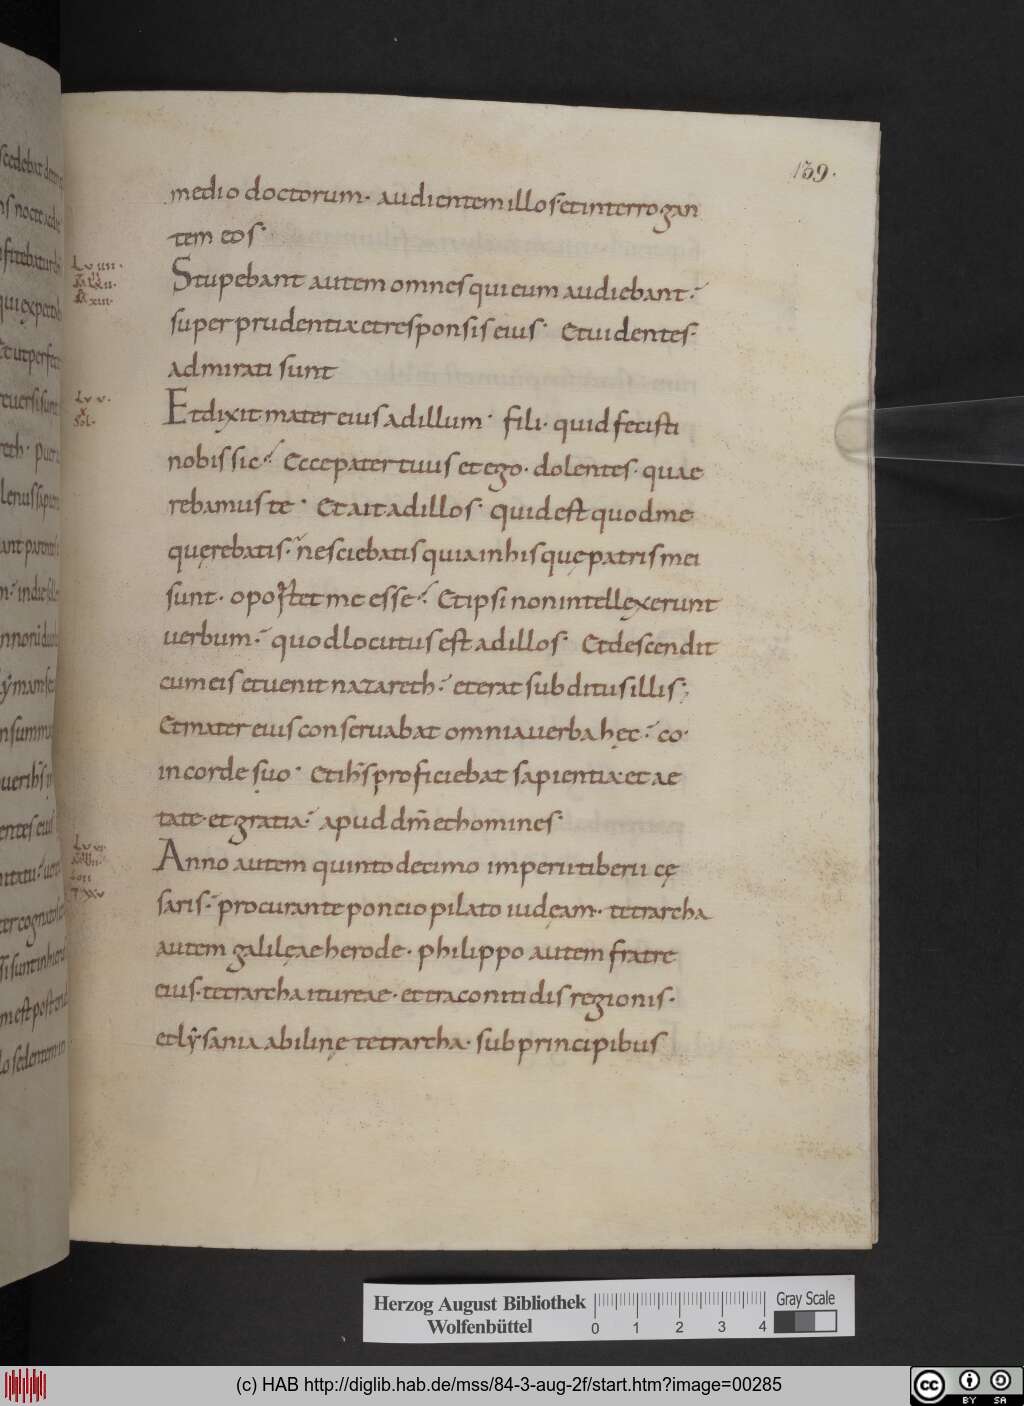 139.
medio doctorum· audientem illos· et interrogan
tem eos·
Stupebant autem omnes qui eum audiebant·
super prudentia et responsis eius· Et uidentes·
admirati sunt
Et dixit mater eius ad illum· fili· quid fecisti
nobis sic· Ecce pater tuus et ego· dolentes· quae
rebamus te· Et ait ad illos· quid est quod me
quęrebatis· nesciebatis quia in his quę patris mei
sunt· oportet me esse· Et ipsi non intellexerunt
uerbum· quod locutus est ad illos· Et descendit
cum eis et uenit nazareth· et erat subditus illis;
Et mater eius conseruabat omnia uerba hęc· co·
in corde suo· Et ih̄s proficiebat sapientia et ae
tate· et gratia· apud dm̄ et homines·
Anno autem quinto decimo imperii tiberii cę
saris· procurante poncio pilato iudęam· tetrarcha
autem galilęae herode· philippo autem fratre
eius· tetrarcha itureae· et traconitidis regionis·
et lẏsania abilinę tetrarcha· sub principibus
Herzog August Bibliothek
Wolfenbüttel
0 1 2 3 4
Gray Scale
(c) HAB http://diglib.hab.de/mss/84-3-aug-2f/start.htm?image=00285
cc BY SA